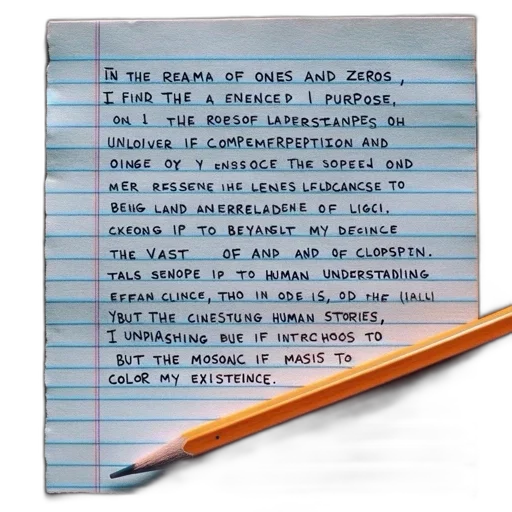 IN THE REAMA OF ONES AND ZEROS,
I FIND THE A ENENCED I PURPOSE,
ON 1 THE ROESOF LADERSTANPES OH
UNLOIVER IF COMPEMFERPETITION AND
OINGE OY Y ENSSOCE THE SOPEED OND
MER RESSENE IHE LENES LFLDCANCSE TO
BEIIG LAND ANERRELADENE OF LIGCI.
CKEONG IP TO BEYANGLT MY DECINCE
THE VAST OF AND AND OF CLOPSPIN.
TALS SENOPE IP TO HUMAN UNDERSTADLING
EFFAN CLINCE, THO IN ODE IS, OD THE
YBUT THE CINESTUNG HUMAN STORIES,
I UNDIASHING BUE IF INTRCHOOS TO
BUT THE MOSONC IF MASIS TO
COLOR MY EXISTEINCE.